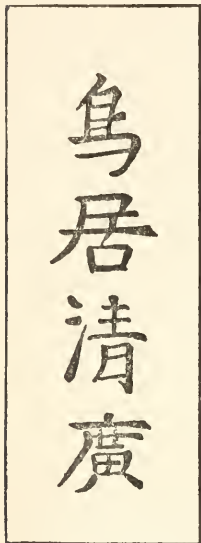 鳥居清廣